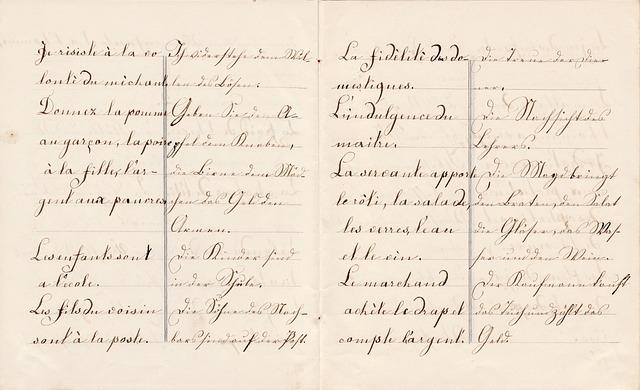 Je résiste à la vo-
lonté du méchant.
Donnez la pomme
au garçon, la poire
à la fille, l'ar-
gent aux pauvres.
Les enfants sont
a l'école.
Les fils du voisin
sont à la poste.
Ich widerstehe dem Wil-
len des Bösen.
Geben Sie den A-
pfel dem Knaben,
die Birne dem Mäd-
chen das Geld den
Armen.
Die Kinder sind
in der Schule.
Die Söhne des Nach-
bars sind auf der Post.
La fidélité des do-
mestiques.
L'indulgence du
maitre.
La servante apporte
le rôti, la salade,
les verres, l'eau
et le vin.
Le marchand
achète le drap et
compte l'argent.
Die Treue der Die-
ner.
Die Nachsicht des
Lehrers.
Die Magd bringt
den Braten, den Salat
die Gläser, das Was-
ser und den Wein.
Der Kaufmann kauft
das Tuch und zählt das
Geld.